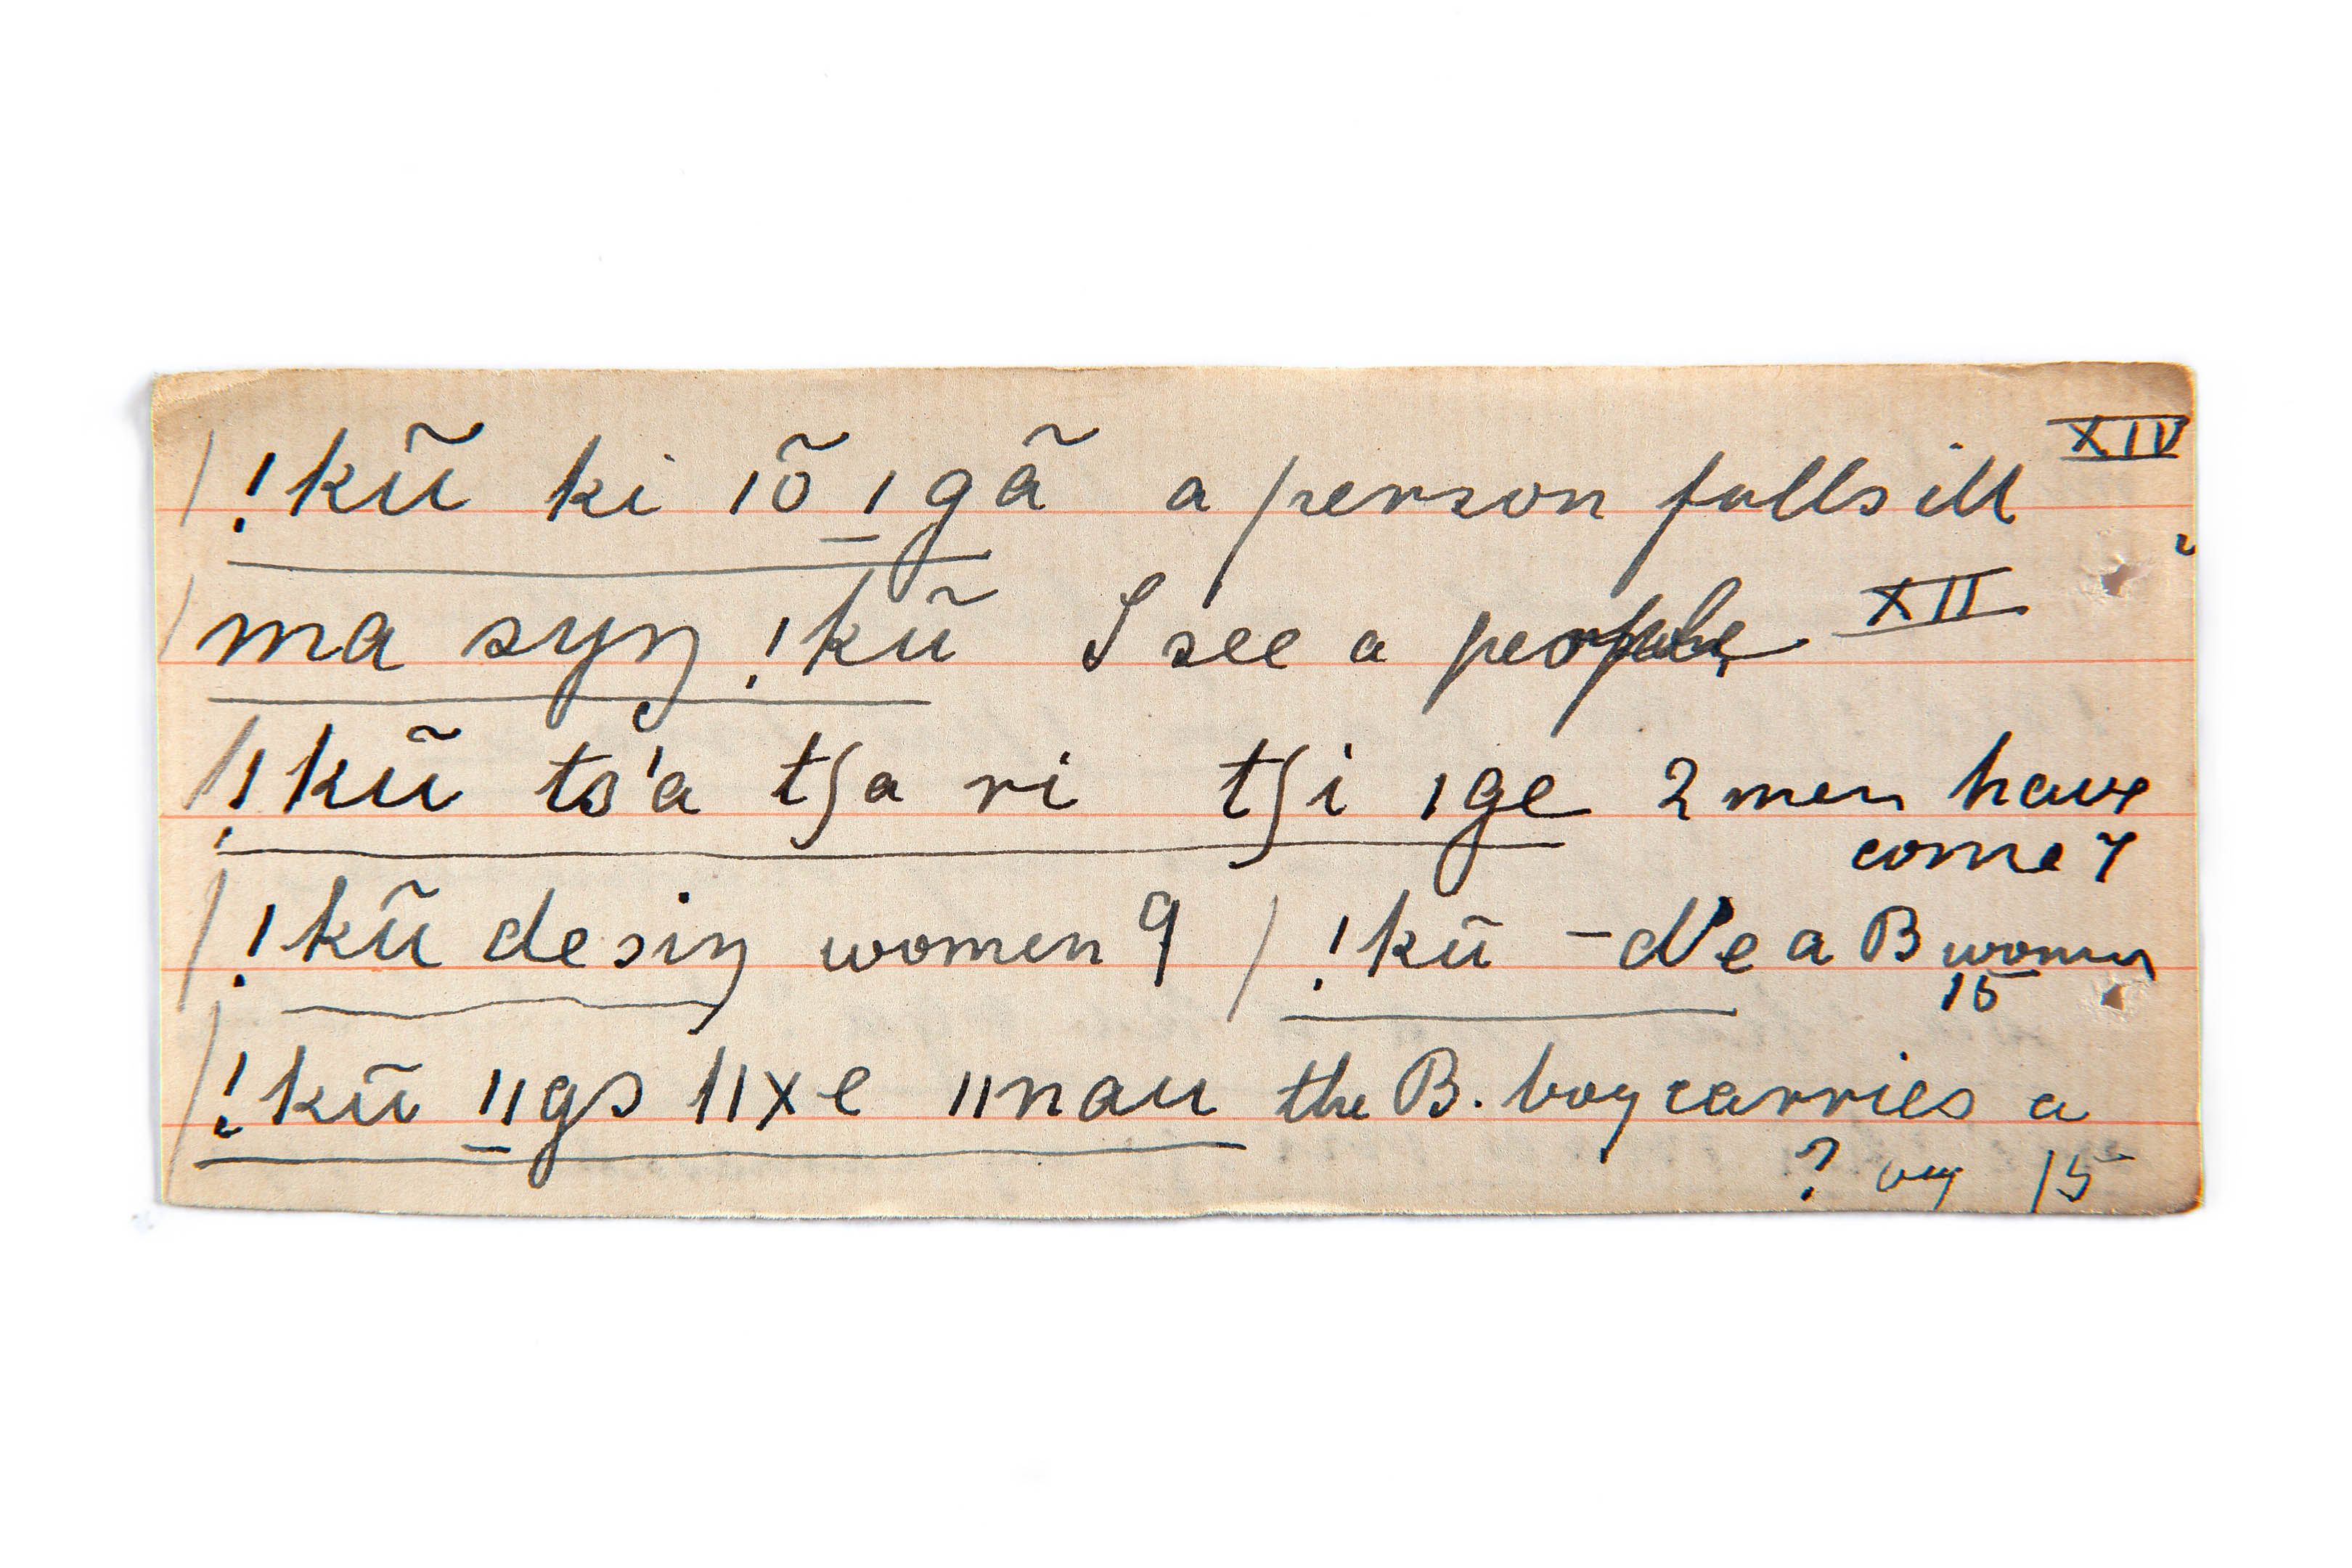 !kũ ki ǀõ ǀgã a person falls ill XIV
ma syŋ !kũ I see a XII
!kũ ts'a tʃa ri tʃi ǀge 2 men have
come 7
!kũ desiŋ women 9 / !kũ -d'e a B woman
15
!kũ ǁgs ǁxe ǁnau the B. boy carries a
? 15